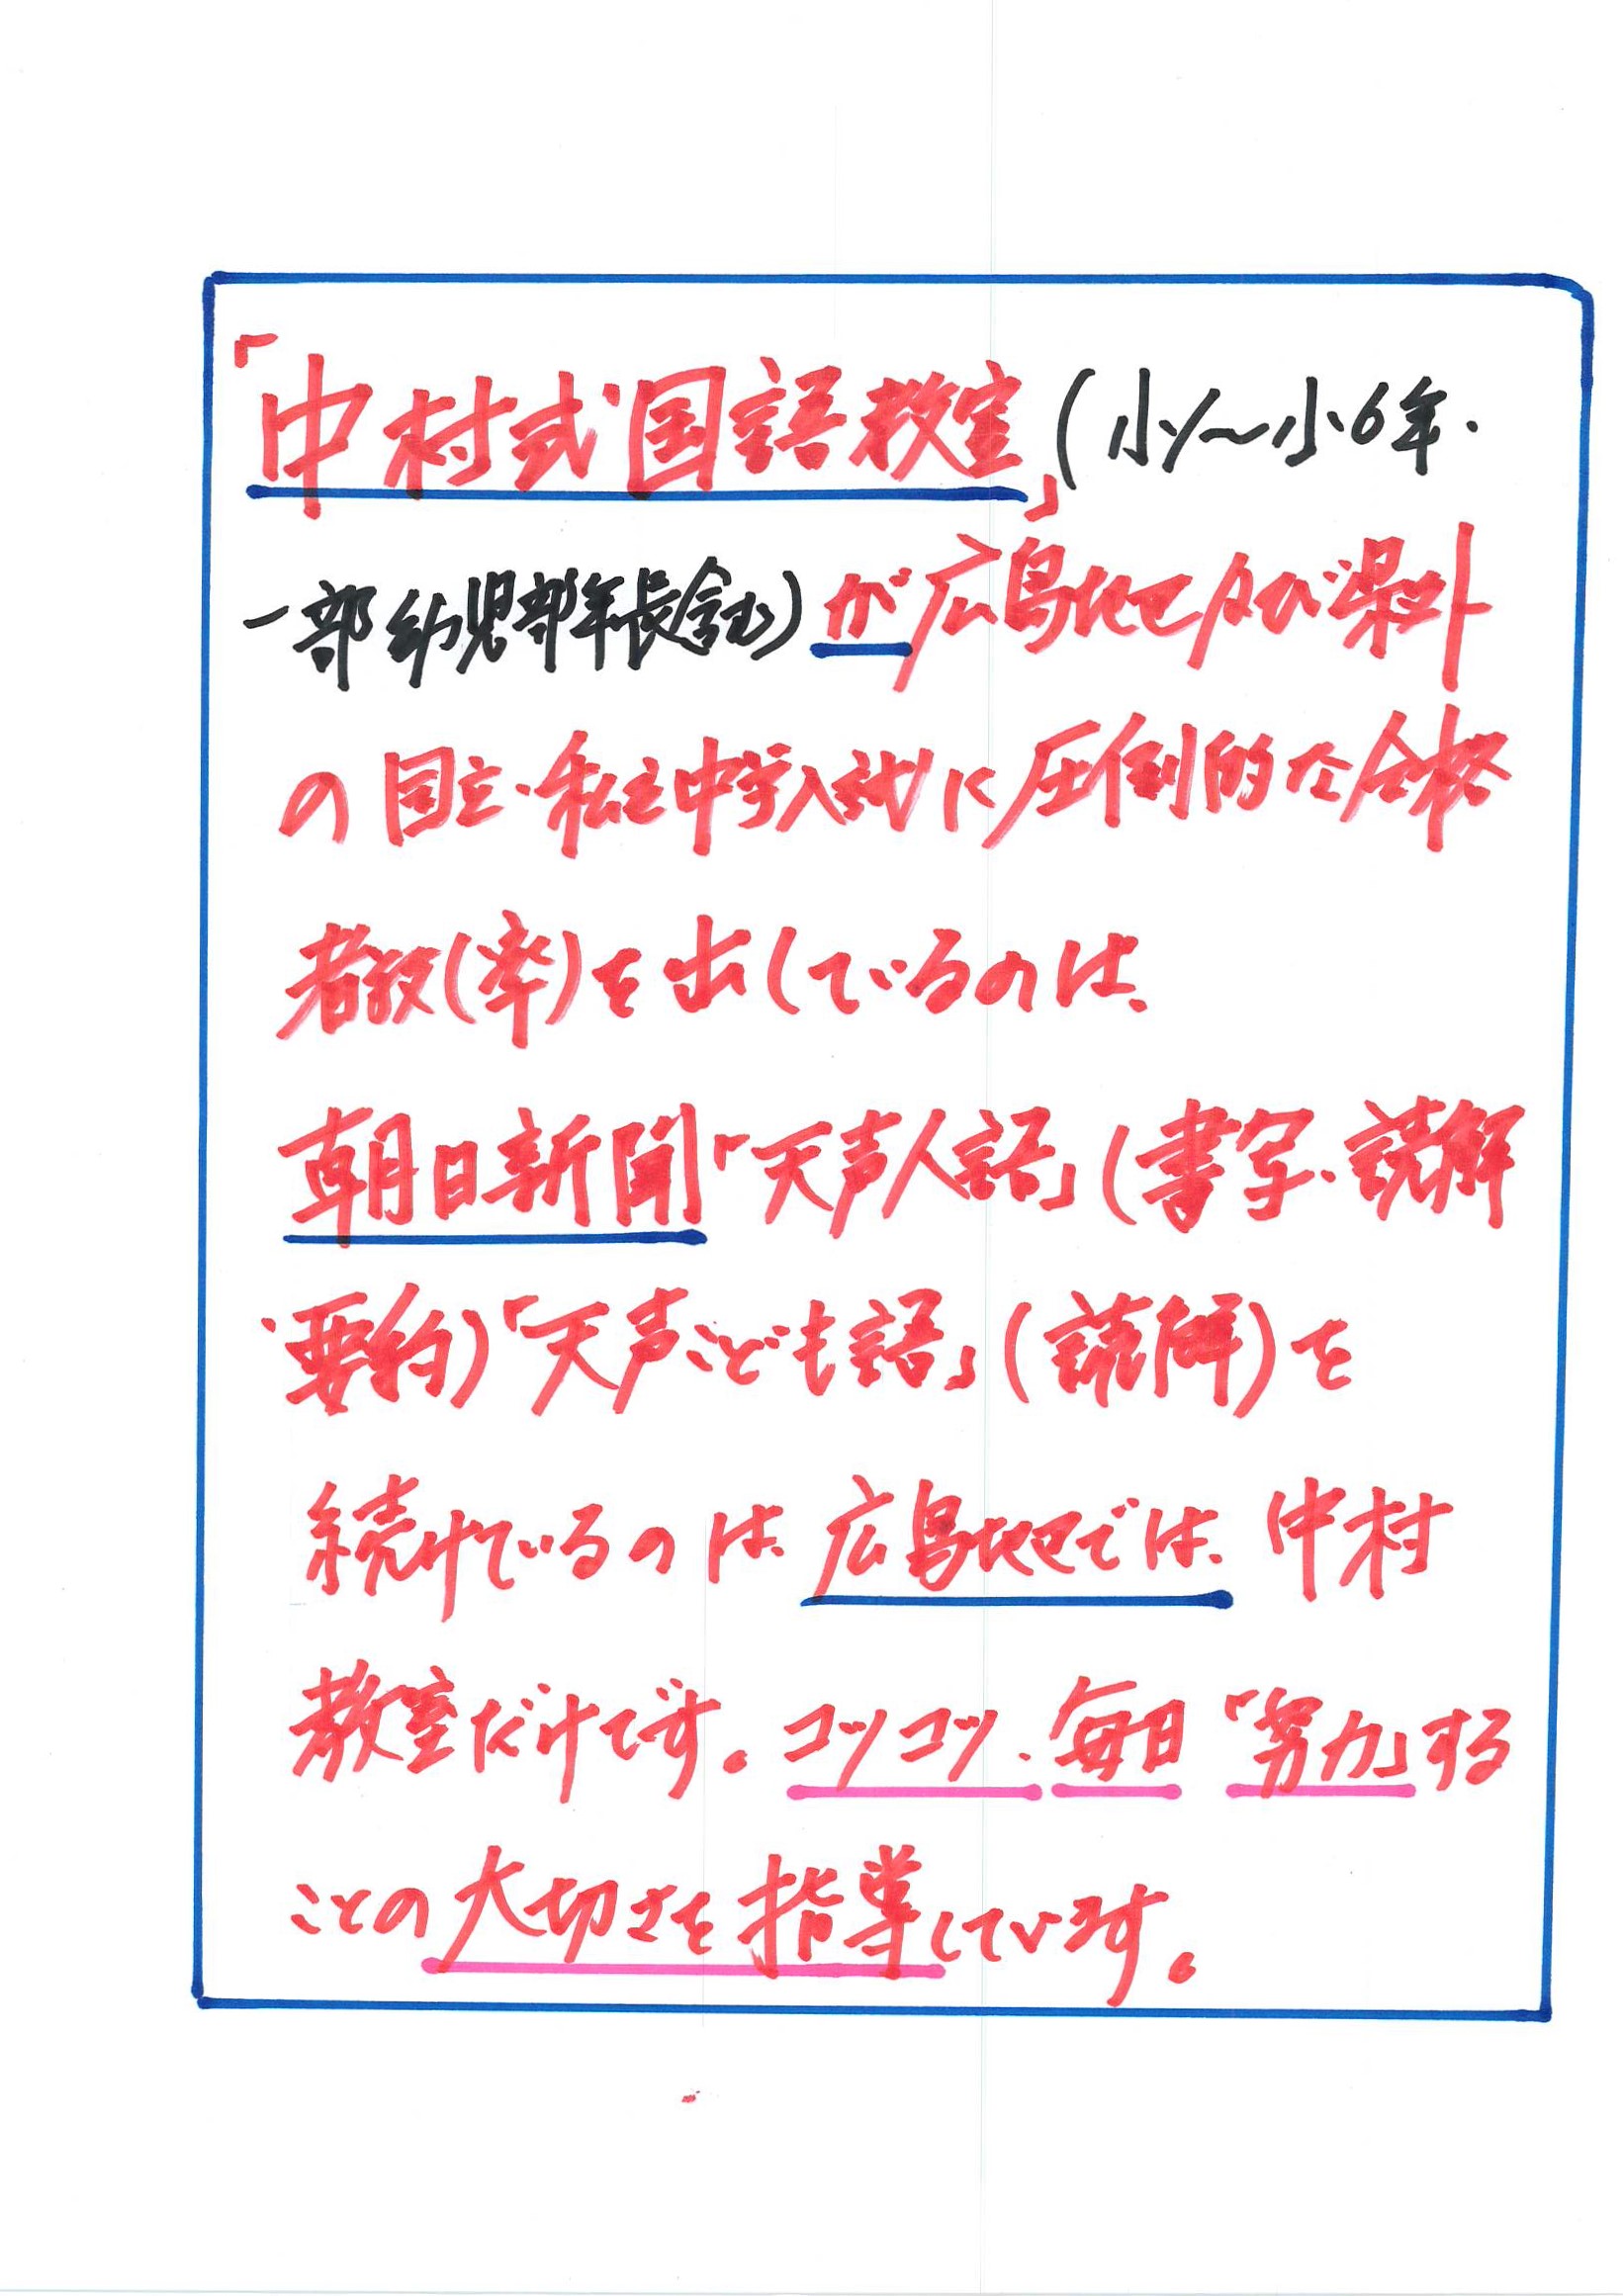 「中村式国語教室」(小1〜小6年・
一部幼児部年長含む)が広島地区及び県外
の国立・私立中学入試に圧倒的な合格
者数(率)を出しているのは、
朝日新聞「天声人語」(書写・読解
・要約)「天声こども語」(読解)を
続けているのは、広島地区では、中村
教室だけです。コツコツ、毎日「努力」する
ことの大切さを指導しています。